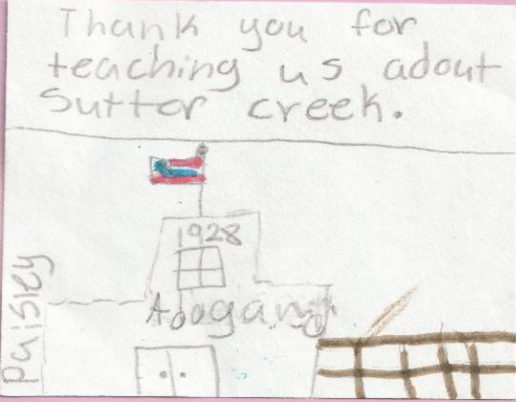 Thank you for
teaching us adout
Sutter creek.
1928
Paisley